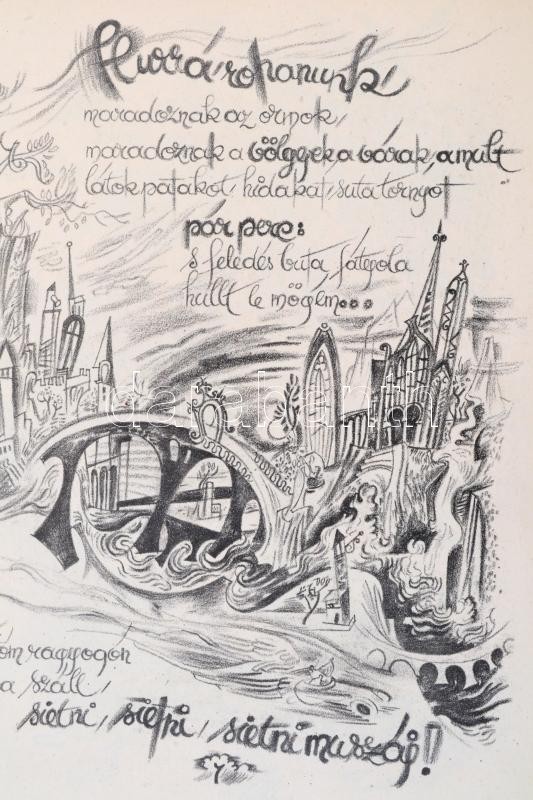 Hurrá, rohanunk,
maradoznak az ormok,
maradoznak a völgyek a várak, a mult
látok patakot, hidakat, suta tornyot
pár perc:
s feledés buta fátyola
hullt le mögém...
darabanth
óm ragyogón
a száll,
sietni, sietni, sietni muszáj!